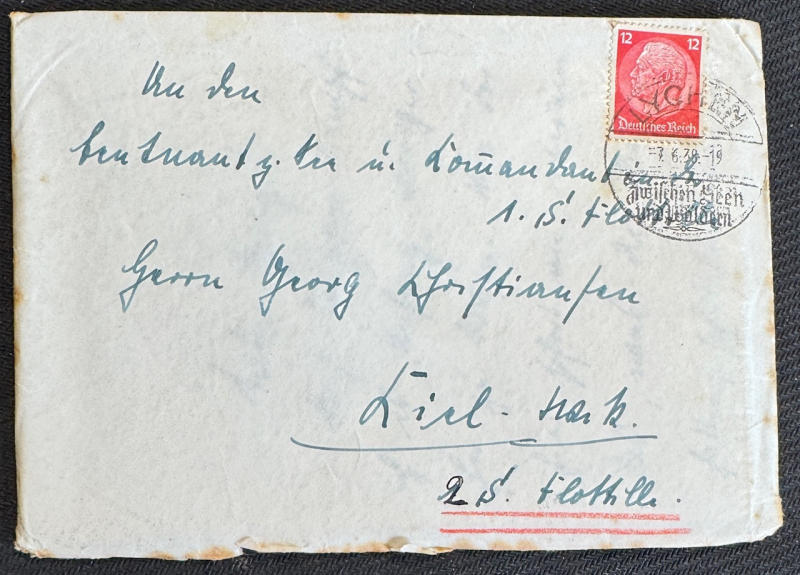 12 12
Deutsches Reich
LYCHEN
-7.6.38.-19
Zwischen Seen
und Wäldern
An den
Leutnant z. See u. Komandant in der
1. S. Flottille
Herrn Georg Christiansen
Kiel-Wik.
2 S. Flottille.